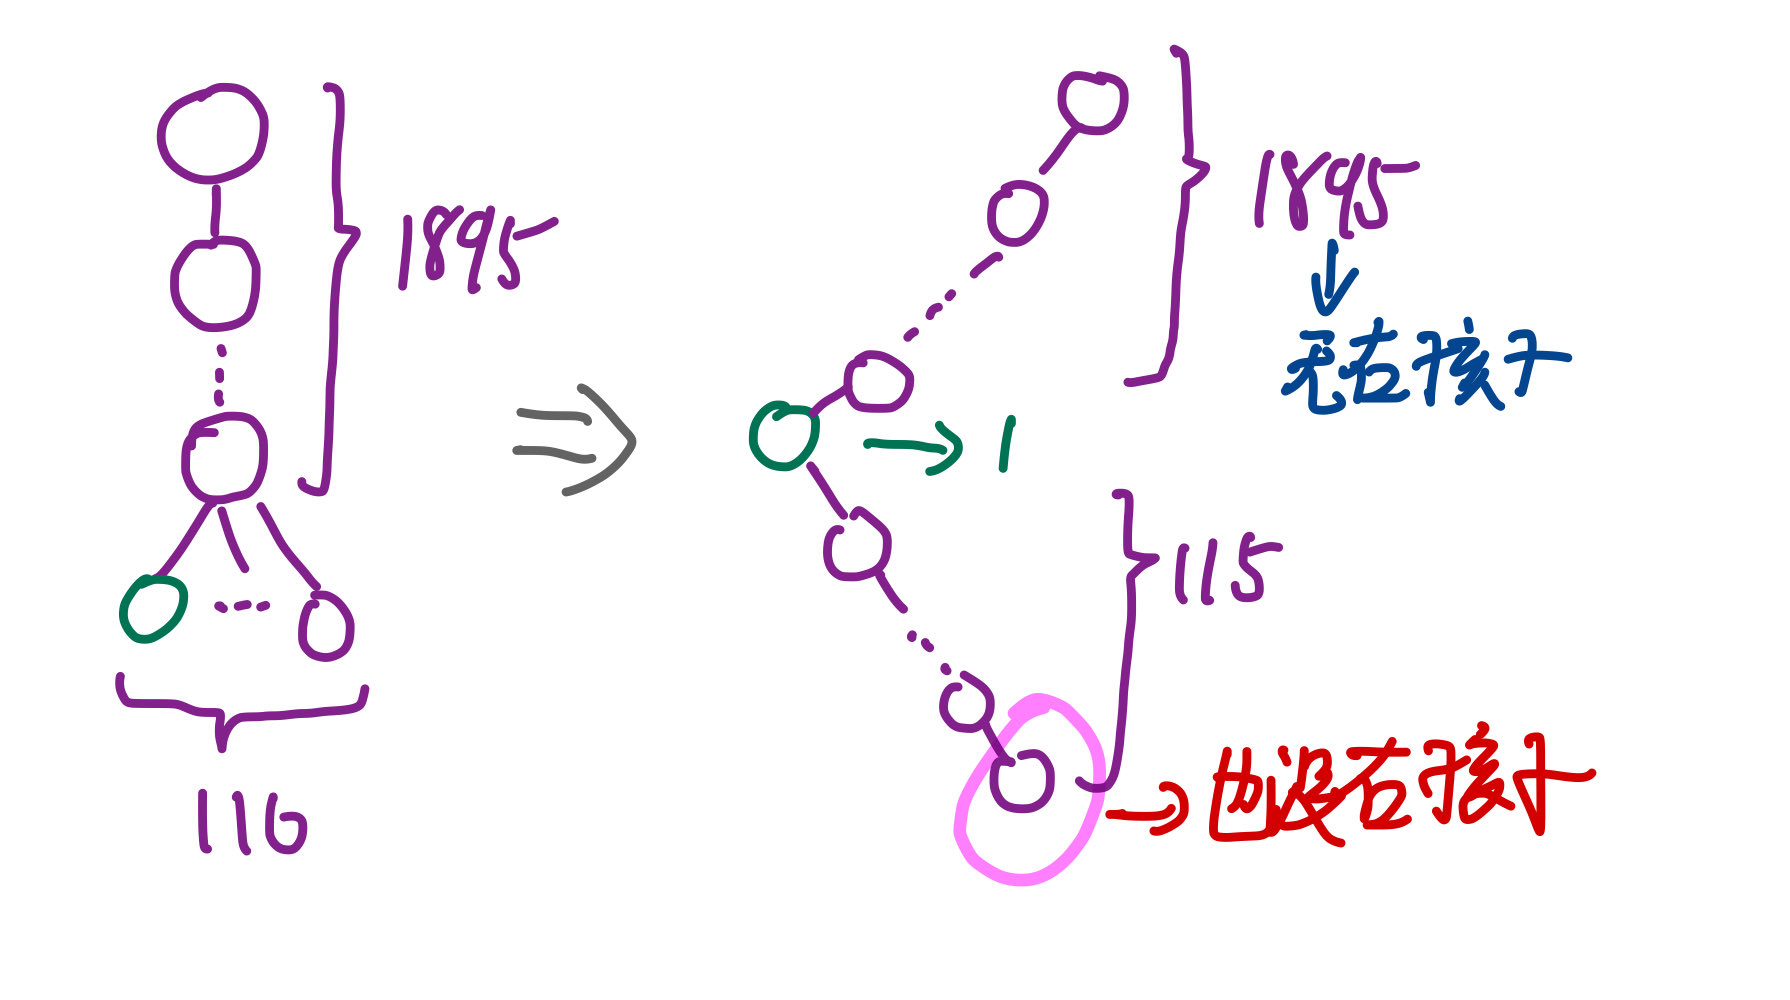 1895
116
1895
无右孩子
1
115
也没右孩子